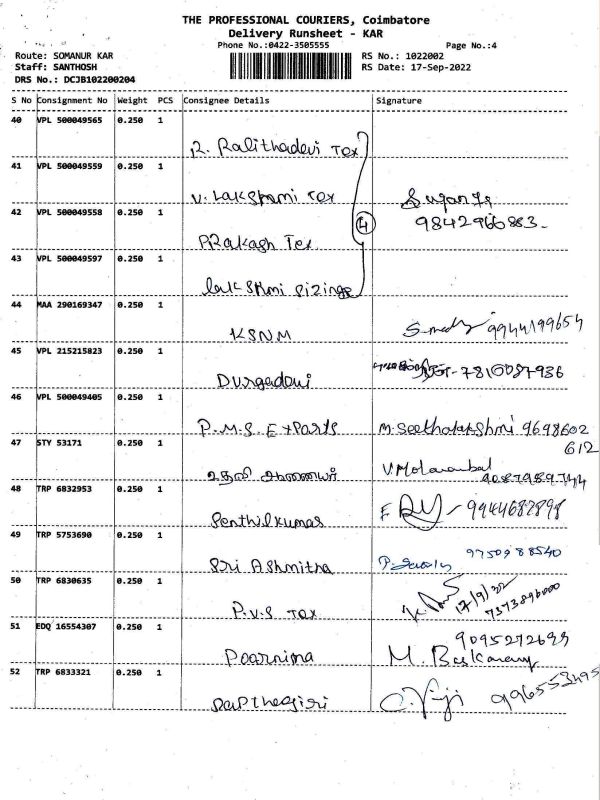 THE PROFESSIONAL COURIERS, Coimbatore
Delivery Runsheet - KAR
Phone No.:0422-3505555 Page No.:4
Route: SOMANUR KAR RS No.: 1022002
Staff: SANTHOSH RS Date: 17-Sep-2022
DRS No.: DCJB102200204
S No Consignment No Weight PCS Consignee Details Signature
40 VPL 500049565 0.250 1
R. Ralithadevi Tex
41 VPL 500049559 0.250 1
V. Lakshmi Tex
42 VPL 500049558 0.250 1
4 9842966883-
PRakash Tex
43 VPL 500049597 0.250 1
Lakshmi Sizing
44 MAA 290169347 0.250 1
KSNM 9944199654
45 VPL 215215823 0.250 1
Durgadevi - 7810087936
46 VPL 500049405 0.250 1
P.M.S. Exports M. Seethalakshmi 9698602
612
47 STY 53171 0.250 1
உதவி ஆணையர் 9087989744
48 TRP 6832953 0.250 1
Senthilkumar 9944682898
49 TRP 5753690 0.250 1
Sri Ashmitha 9750988540
50 TRP 6830635 0.250 1
P.V.S Tex 17/9/22
7373896000
51 EDQ 16554307 0.250 1
9095272699
Poornima M. Baskaran
52 TRP 6833321 0.250 1
Sapthagiri C. Viji 996553495